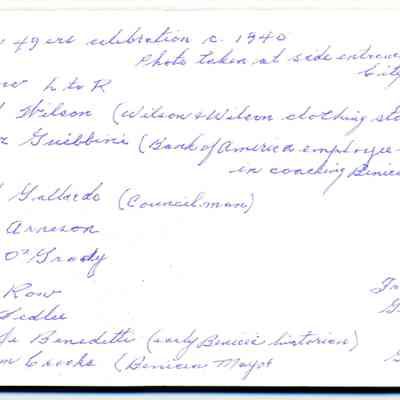 49ers celebration c. 1940
Photo taken at side entrance
City
L to R
Wilson (Wilson & Wilson clothing sto
Guibbini (Bank of America employee
in coaching Benici
Gallardo (Councilman)
Arneson
O'Grady
Row
Fr
Jedlee
G
Benedetti (early Benicia historian)
Crooks (Benicia Mayor